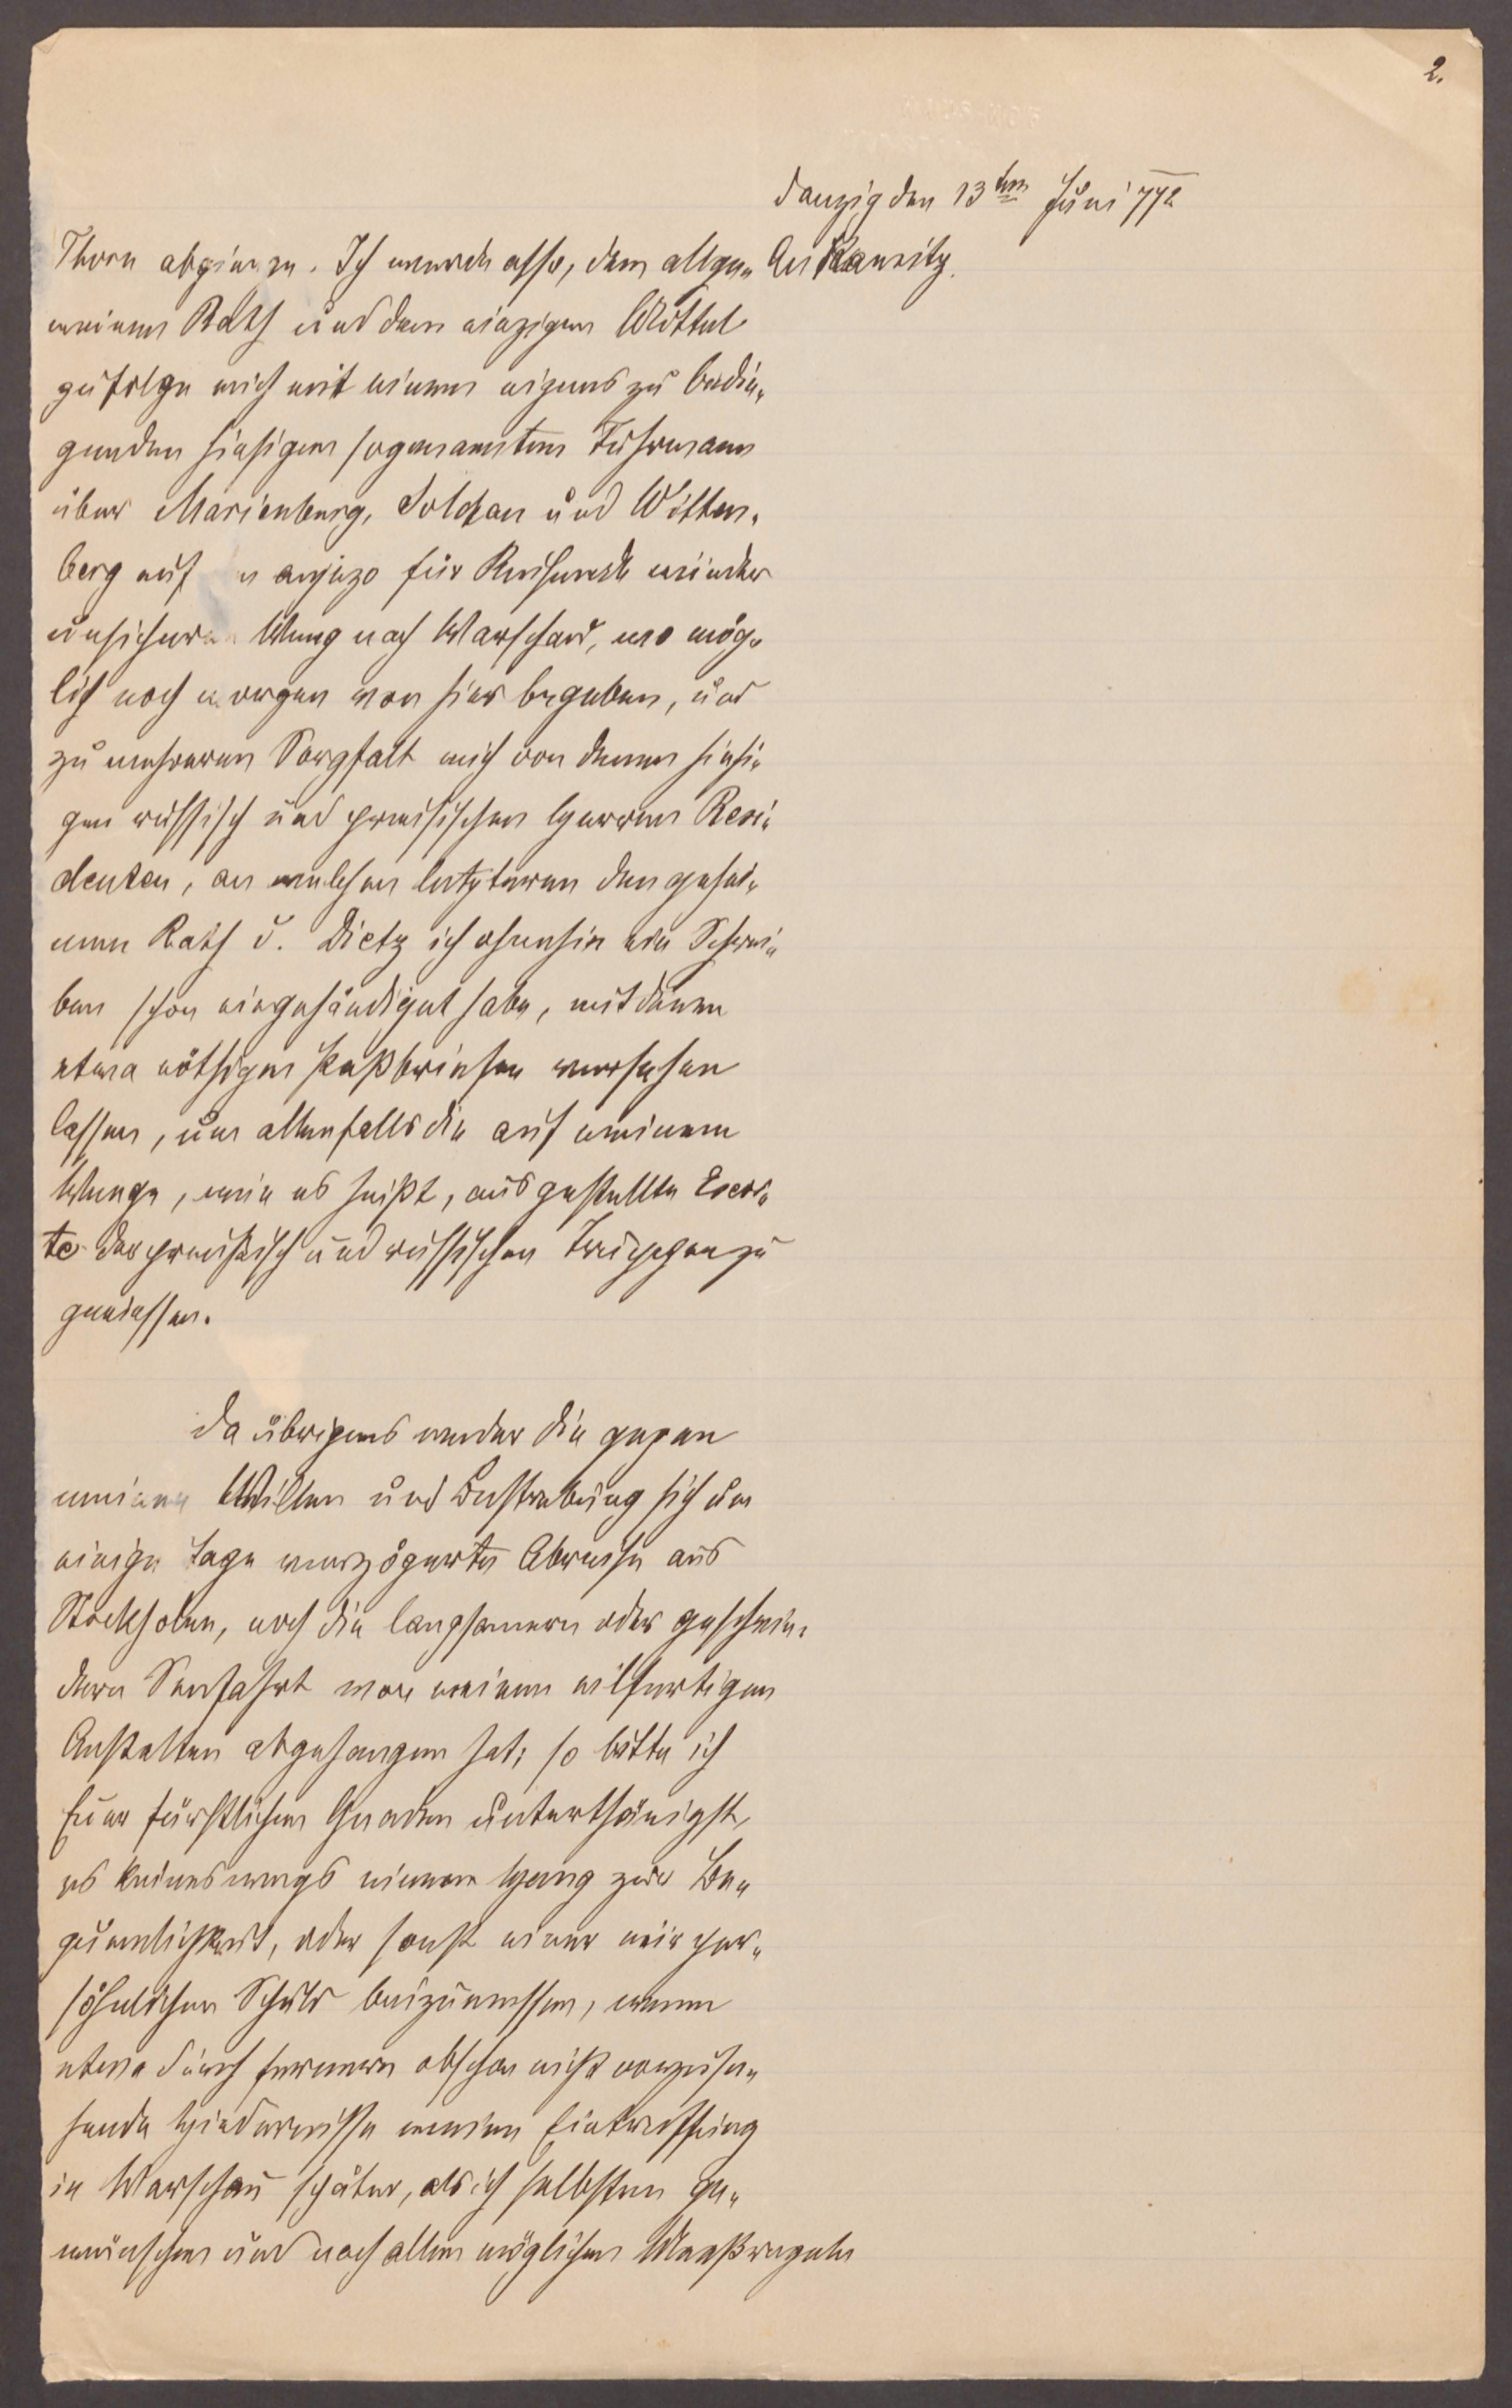 2.
Danzig den 13ten Juni 772
An Kaunitz.
Thorn abgienge. Ich werde also, dem allge„
meinen Rath und dem einzigen Mittel
zufolge mich mit einem eigens zu bedin„
genden hiesigen sogenannten Fuhrmann
über Marienburg, Soldau und Witten„
berg auf n anjezo für Reisende minder
unsichern Weeg nach Warschau, wo mög„
lich noch morgen von hier begeben, und
zu mehreren Sorgfalt mich von denen hiesi„
gen russisch und preusischen Herren Resi„
denten, an welchen letzteren den gehei„
men Rath v. Dietz ich ohnehin ein Schrei„
ben schon eingehändiget habe, mit denen
etwa nöthigen Paßbriefen versehen
lassen, um allenfalls die auf meinem
Weege, wie es heißt, ausgestellte Escor„
te der preußisch und russischen Truppen zu
geniessen.
Da übrigens weder die gegen
meinen Willen und Bestrebung sich um
einige Tage verzögerte Abreise aus
Stockholm, noch die langsamere oder geschwin„
dere Seefahrt von meinen eilfertigen
Anstalten abgehangen hat; so bitte ich
Euer fürstlichen Gnaden unterthänigst,
es keineswegs einem Hang zur Be„
quemlichkeit, oder sonst einer mir per„
söhnlichen Schuld beizumessen, wenn
etwa durch fernere obschon nicht vorzuse„
hende Hindernisse meine Eintreffung
in Warschau später, als ich selbsten ge„
wünschen und nach allen möglichen Maaßregeln